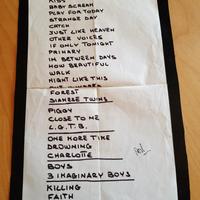 KIDS
BABY SCREAM
PLAY FOR TODAY
STRANGE DAY
CATCH
JUST LIKE HEAVEN
OTHER VOICES
IF ONLY TONIGHT
PRIMARY
IN BETWEEN DAYS
HOW BEAUTIFUL
WALK
NIGHT LIKE THIS
FOREST
SIAMESE TWINS
PIGGY
CLOSE TO ME
L.G.T.B.
ONE MORE TIME
DROWNING
CHARLOTTE
BOYS
3 IMAGINARY BOYS
KILLING
FAITH